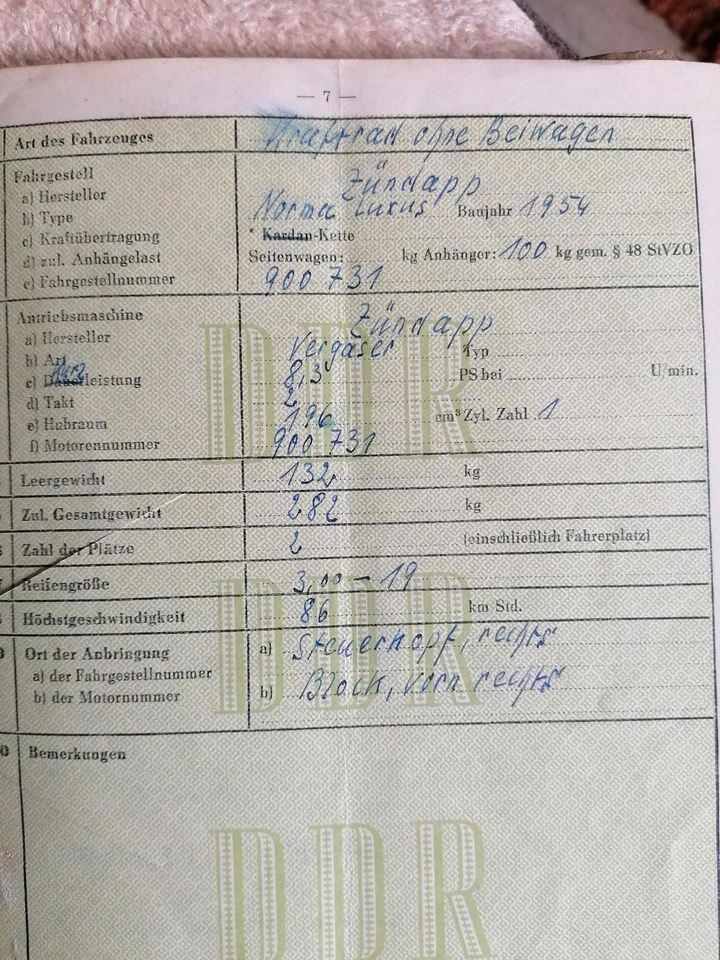 — 7 —
Art des Fahrzeuges Kraftrad ohne Beiwagen
Fahrgestell
a) Hersteller Zündapp
b) Type Norma Luxus Baujahr 1954
c) Kraftübertragung * Kardan-Kette
d) zul. Anhängelast Seitenwagen: kg Anhänger: 100 kg gem. § 48 StVZO
e) Fahrgestellnummer 900 731
Antriebsmaschine
a) Hersteller Zündapp
b) Art Vergaser Typ
c) Dauerleistung 8,3 PS bei U/min.
d) Takt 2
e) Hubraum 196 cm³ Zyl. Zahl 1
f) Motorennummer 900 731
Leergewicht 132 kg
Zul. Gesamtgewicht 282 kg
Zahl der Plätze 2 (einschließlich Fahrerplatz)
Reifengröße 3,00 – 19
Höchstgeschwindigkeit 86 km Std.
Ort der Anbringung
a) der Fahrgestellnummer a) Steuerkopf, rechts
b) der Motornummer b) Block, vorn rechts
Bemerkungen
DDR
DDR
DDR